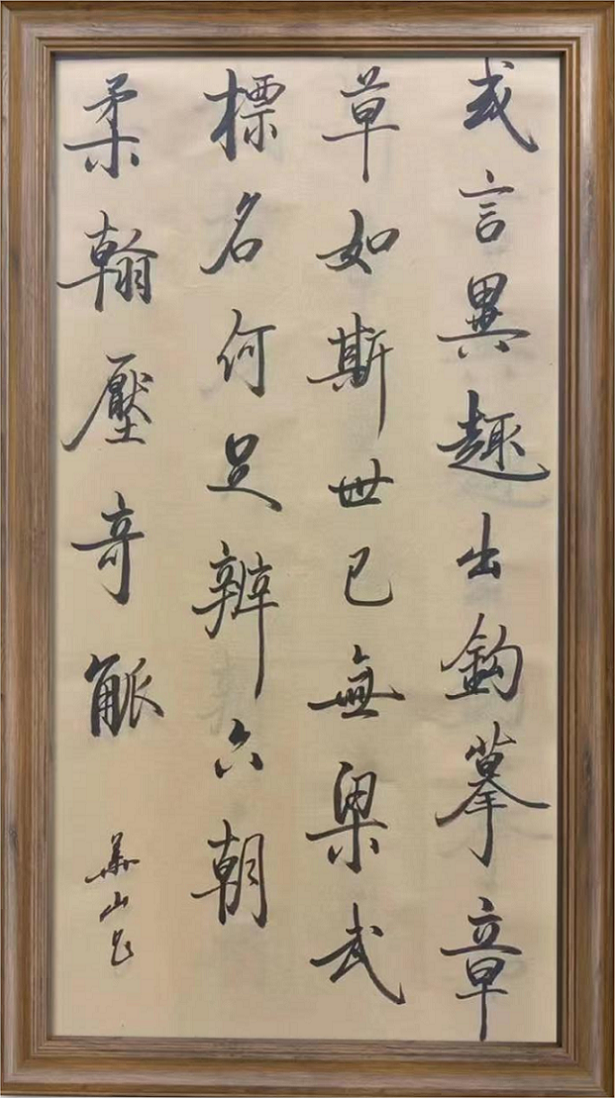 或言異趣出鈎摹章
草如斯世已無梁武
標名何足辨六朝
柔翰壓奇觚
華山